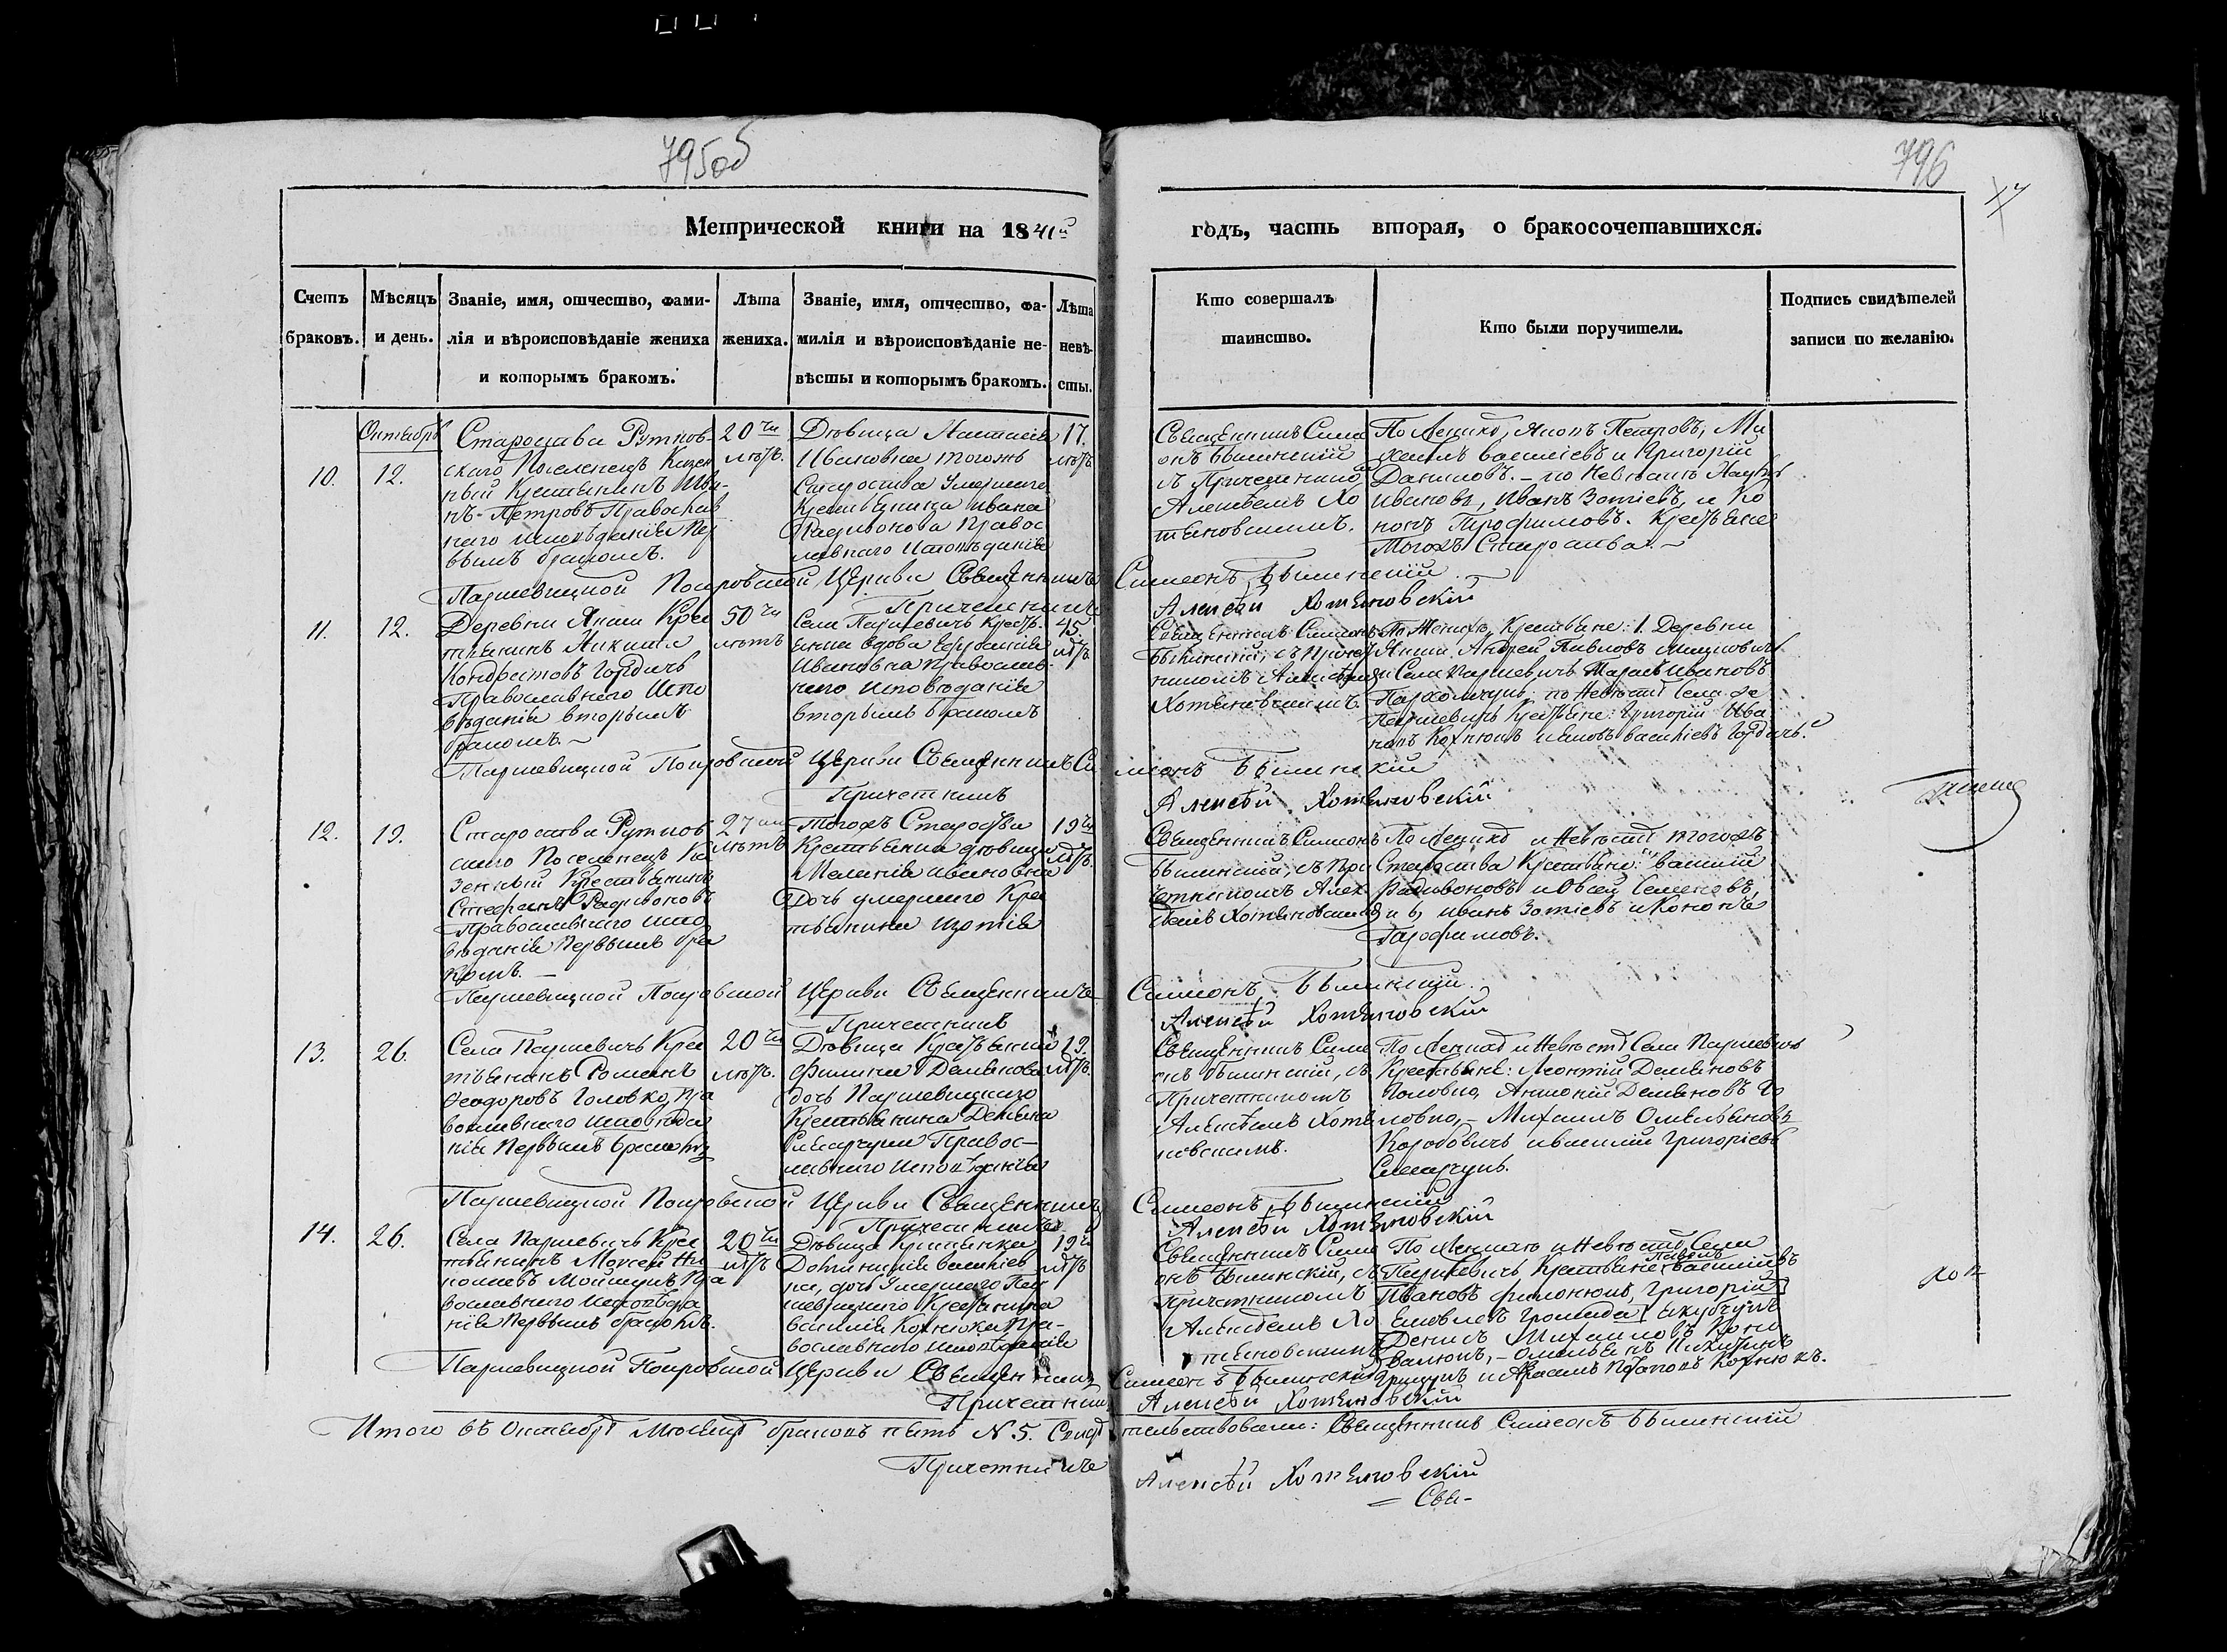 795об
796
Метрической книги на 1841й годъ, часть вторая, о бракосочетавшихся.
Счетъ браковъ.
Мѣсяцъ и день.
Званіе, имя, отчество, фами-
лія и вѣроисповѣданіе жениха
и которымъ бракомъ.
Лѣта
жениха.
Званіе, имя, отчество, фа-
милія и вѣроисповѣданіе не-
вѣсты и которымъ бракомъ.
Лѣта
невѣ-
сты.
Кто совершалъ
таинство.
Кто были поручители.
Подпись свидѣтелей
записи по желанію.
Октябрь
10.
12.
Староства
скаго Поселенецъ Казен
ный Крестьянинъ Ива-
нъ Петровъ Православ
наго исповѣданія Пер
вымъ бракомъ.
20ти
лѣтъ.
Дѣвица Настасія
Ивановна тогожъ
Староства Умершаго
Крестьянина Ивана
Радивонова Правос
лавнаго Исповѣданія
17.
лѣтъ
Священникъ Симе
онъ
съ Причетникомъ
Алексѣемъ Хо
теновскимъ.
По Женихѣ, Яковъ Петровъ, Ми
хаилъ Василіевъ и Григорій
Даниловъ. – по Невѣстѣ Наумъ
Ивановъ, Иванъ Зотіевъ и Ко
нонъ Трофимовъ. Крестьяне
Тогожъ Староства. –
Паршевицкой Покровской Церкви Священникъ Симеонъ
Причетникъ Алексѣй Хотеновскій
11.
12.
Деревни Якши Крес
тьянинъ Никита
Кондратовъ Гордичъ
Православнаго Испо
вѣданія вторымъ
бракомъ. –
50ти
лѣтъ
Села Паршевичъ Крест.
янка вдова Евфросинія
Ивановна Православ-
наго Исповѣданія
вторымъ бракомъ
45.
лѣтъ
Священникъ Симеонъ
съ Причет
никомъ Алексѣемъ
Хотеновскимъ.
По Женихѣ, Крестьяне: 1. Деревни
Якши Андрей Павловъ
и Села Паршевичъ Тарасъ Ивановъ
по Невѣстѣ Села
Паршевичъ Крестьяне: Григорій Ива
новъ Кохнюкъ и Яковъ Василіевъ Гордичъ.
Паршевицкой Покровской Церкви Священникъ Симеонъ
Причетникъ Алексѣй Хотеновскій
12.
19.
Староства
скаго Поселенецъ Ка
зенный Крестьянинъ
Стефанъ Радивоновъ
Православнаго испо
вѣданія Первымъ бра
комъ. –
27ми
лѣтъ
Тогожъ Староства
Крестьянка дѣвица
Меланія Ивановна
Дочь умершаго Крес
тьянина Изотія
19ть
лѣтъ.
Священникъ Симеонъ
съ При
четникомъ Алек
сѣемъ Хотеновскимъ
По Женихѣ и Невѣстѣ Тогожъ
Староства Крестьяне: Василій
Радивоновъ и Овсей Семеновъ,
Иванъ Зотіевъ и Кононъ
Трофимовъ.
Паршевицкой Покровской Церкви Священникъ Симеонъ
Причетникъ Алексѣй Хотеновскій
13.
26.
Села Паршевичъ Крес
тьянинъ Романъ
Ѳеодоровъ Головко, Пра
вославнаго Исповѣда
нія Первымъ бракомъ
20ти
лѣтъ.
Дѣвица Крестьянка
Демянова
дочь Паршевицкаго
Крестьянина Демяна
Правос-
лавнаго Исповѣданія
19.
лѣтъ.
Священникъ Симе
онъ съ
Причетникомъ
Алексѣемъ Хоте
новскимъ.
По Женихѣ и Невѣстѣ Села Паршевичъ
Крестьяне: Леонтій Демяновъ
Головко, Антоній Демяновъ Го
ловко, – Михаилъ Омельяновъ
Коробовичъ и Василій Григоріевъ
Паршевицкой Покровской Церкви Священникъ Симеонъ
Причетникъ Алексѣй Хотеновскій
14.
26.
Села Паршевичъ Крес
тьянинъ Моисей Ни
колаевъ Пра
вославнаго Исповѣда
нія Первымъ бракомъ.
20ти
лѣтъ
Дѣвица Крестьянка
Домникія Василіев
на, дочь Умершаго Пар
шевицкаго Крестьянина
Василія Кохнюка Пра-
вославнаго Исповѣданія
19ть
лѣтъ
Священникъ Симе
онъ съ
Причетникомъ
Алексѣемъ Хо
теновскимъ
По Женихѣ и Невѣстѣ Села
Паршевичъ Крестьяне
Ивановъ Филонюкъ, Григорій
Яковлевъ
Денисъ Михаиловъ
Кохнюкъ.
Паршевицкой Покровской Церкви Священникъ Симеонъ
Причетникъ Алексѣй Хотеновскій
Итого въ Октябрѣ Мѣсяцѣ браковъ пять N 5. Свидѣтельствовали: Священникъ Симеонъ
Причетникъ Алексѣй Хотеновскій